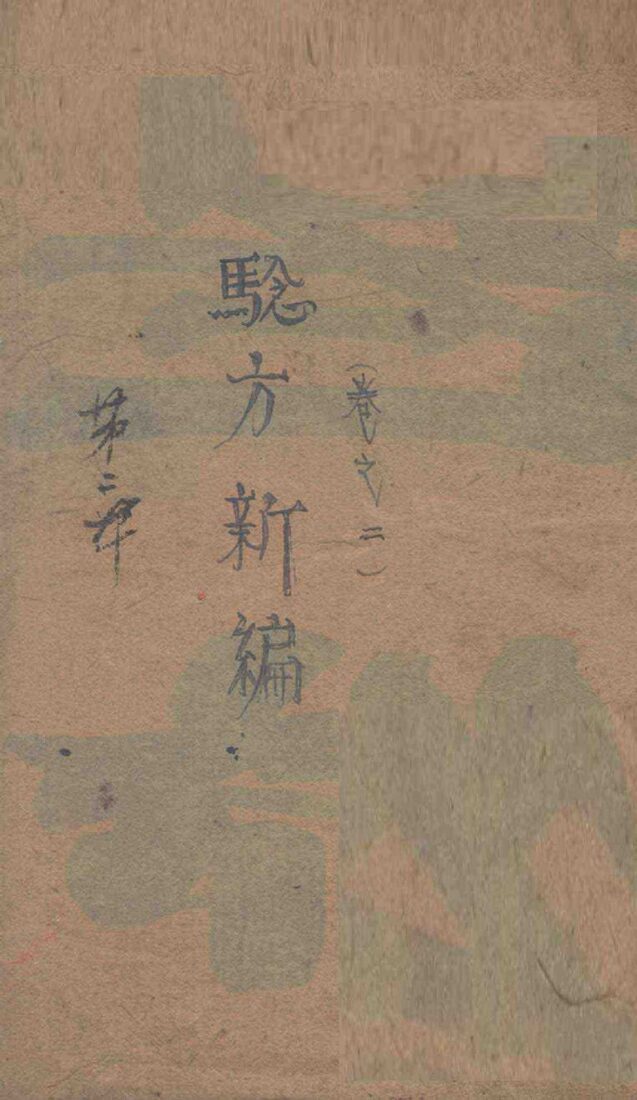 （卷之二）
騐方新編
第二本